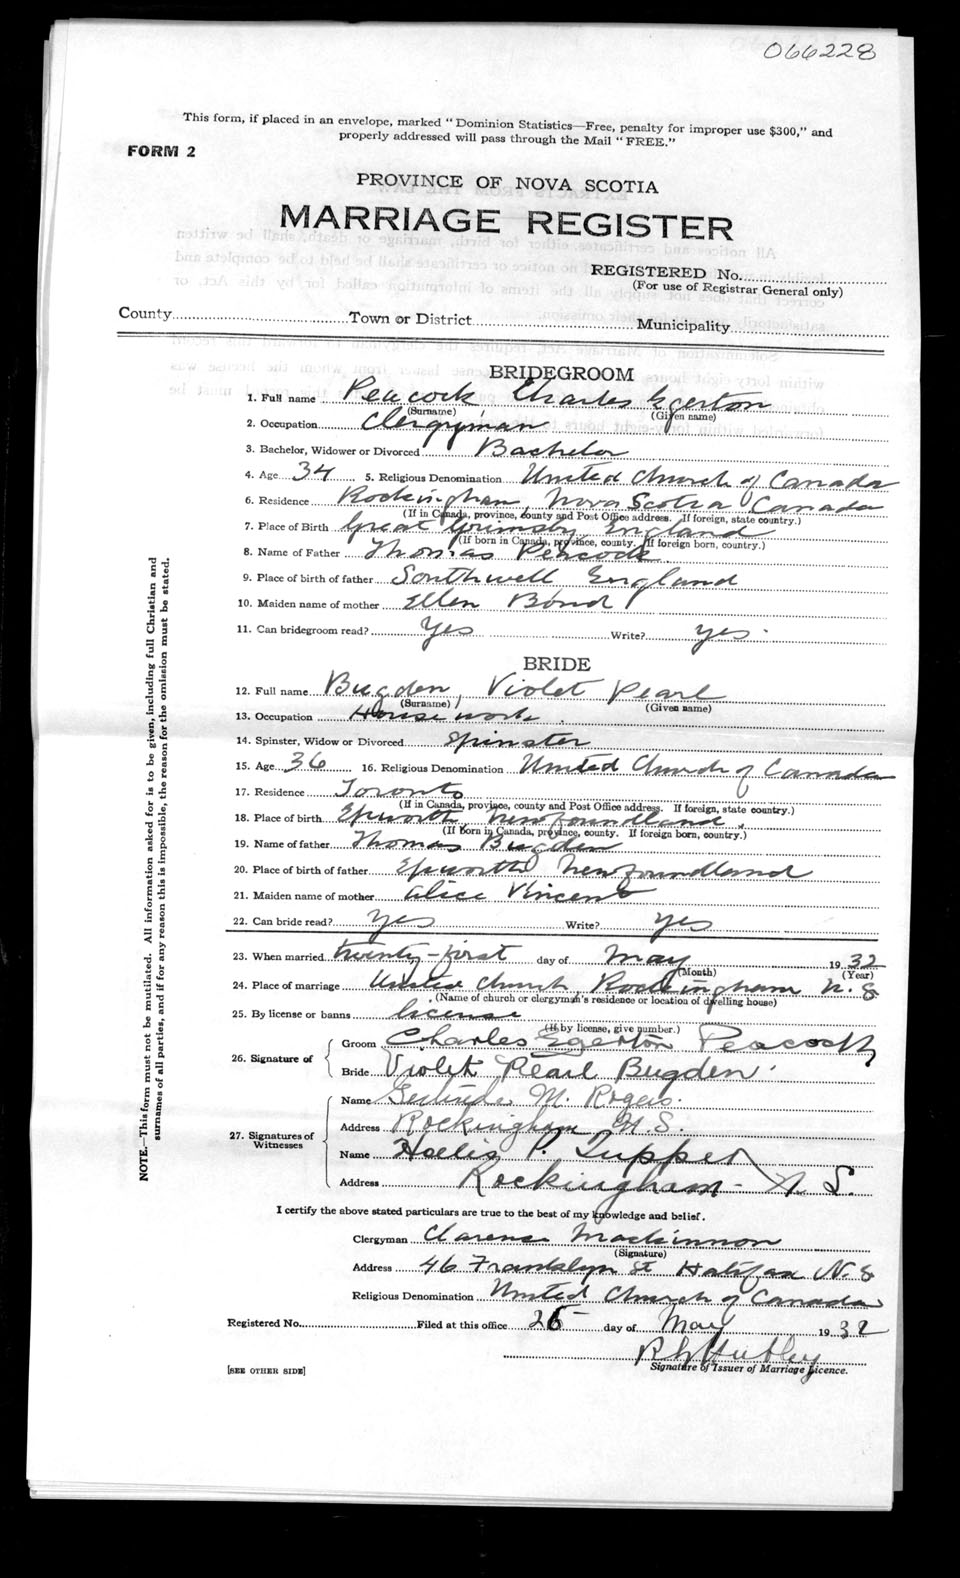 066228
This form, if placed in an envelope, marked "Dominion Statistics—Free, penalty for improper use $300," and
properly addressed will pass through the Mail "FREE."
FORM 2
PROVINCE OF NOVA SCOTIA
MARRIAGE REGISTER
REGISTERED No.
(For use of Registrar General only)
County Town or District Municipality
BRIDEGROOM
1. Full name Peacock, Charles Egerton
(Surname) (Given name)
2. Occupation Clergyman
3. Bachelor, Widower or Divorced Bachelor
4. Age 34 5. Religious Denomination United Church of Canada
6. Residence Rockingham, Nova Scotia Canada
(If in Canada, province, county and Post Office address. If foreign, state country.)
7. Place of Birth Great Grimsby England
(If born in Canada, province, county. If foreign born, country.)
8. Name of Father Thomas Peacock
9. Place of birth of father Southwell England
10. Maiden name of mother Ellen Bond
11. Can bridegroom read? Yes Write? yes.
BRIDE
12. Full name Bugden, Violet Pearl
(Surname) (Given name)
13. Occupation House work.
14. Spinster, Widow or Divorced Spinster
15. Age 36 16. Religious Denomination United Church of Canada
17. Residence Toronto
(If in Canada, province, county and Post Office address. If foreign, state country.)
18. Place of birth Epworth, Newfoundland.
(If born in Canada, province, county. If foreign born, country.)
19. Name of father Thomas Bugden
20. Place of birth of father Epworth Newfoundland
21. Maiden name of mother Alice Vincent
22. Can bride read? Yes Write? yes
23. When married twenty-first day of May 1932
(Month) (Year)
24. Place of marriage United Church, Rockingham N.S
(Name of church or clergyman's residence or location of dwelling house)
25. By license or banns license
(If by license, give number.)
26. Signature of
Groom Charles Egerton Peacock
Bride Violet Pearl Bugden.
27. Signatures of Witnesses
Name M. Rogers.
Address Rockingham N.S.
Name P. Tupper
Address Rockingham - N.S.
I certify the above stated particulars are true to the best of my knowledge and belief.
Clergyman Clarence Mackinnon
(Signature)
Address 46 Franklyn St Halifax N.S
Religious Denomination United Church of Canada
Registered No. Filed at this office day of May 1932
R Hubley
Signature of Issuer of Marriage Licence.
[SEE OTHER SIDE]
NOTE.—This form must not be mutilated. All information asked for is to be given, including full Christian and
surnames of all parties, and if for any reason this is impossible, the reason for the omission must be stated.